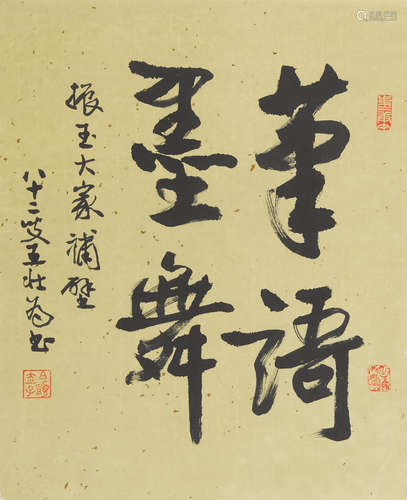 筆語
墨舞
振玉大家補壁
八十二叟王壯為書